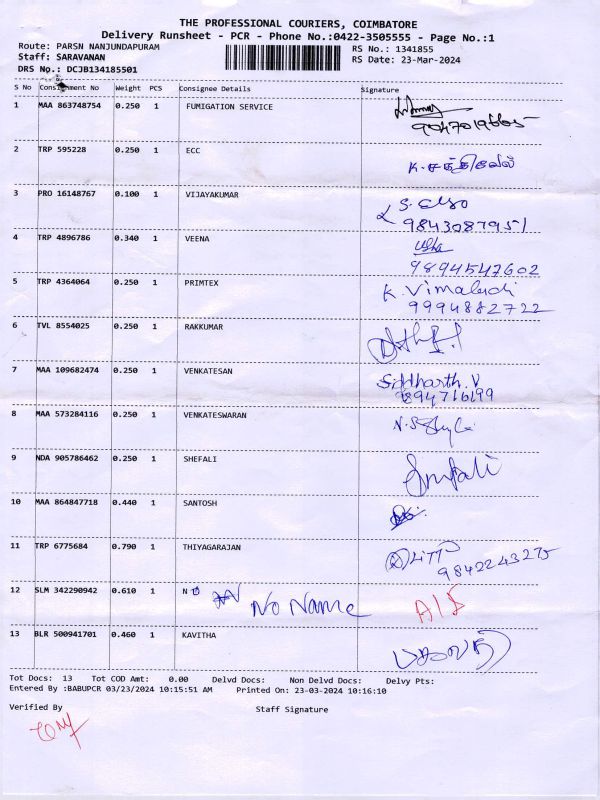 THE PROFESSIONAL COURIERS, COIMBATORE
Delivery Runsheet - PCR - Phone No.:0422-3505555 - Page No.:1
Route: PARSN NANJUNDAPURAM
RS No.: 1341855
Staff: SARAVANAN
RS Date: 23-Mar-2024
DRS No.: DCJB134185501
S No Consignment No Weight PCS Consignee Details Signature
1 MAA 863748754 0.250 1 FUMIGATION SERVICE
2 TRP 595228 0.250 1 ECC க. சக்திவேல்
3 PRO 16148767 0.100 1 VIJAYAKUMAR
9843087951
4 TRP 4896786 0.340 1 VEENA Usha
9894547602
5 TRP 4364064 0.250 1 PRIMTEX K. Vimaladi
9994882722
6 TVL 8554025 0.250 1 RAKKUMAR
7 MAA 109682474 0.250 1 VENKATESAN Siddharth. V
894716199
8 MAA 573284116 0.250 1 VENKATESWARAN
9 NDA 905786462 0.250 1 SHEFALI
10 MAA 864847718 0.440 1 SANTOSH
11 TRP 6775684 0.790 1 THIYAGARAJAN
9842243275
12 SLM 342290942 0.610 1 N No Name
13 BLR 500941701 0.460 1 KAVITHA
Tot Docs: 13 Tot COD Amt: 0.00 Delvd Docs: Non Delvd Docs: Delvy Pts:
Entered By :BABUPCR 03/23/2024 10:15:51 AM Printed On: 23-03-2024 10:16:10
Verified By Staff Signature